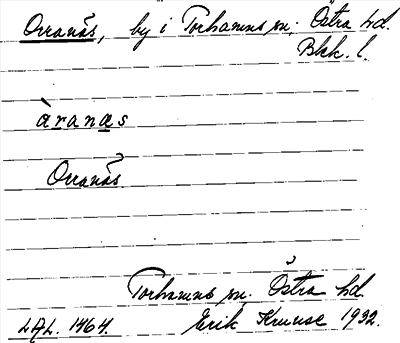 Orranäs, by i Torhamns sn. Östra hd.
Blek. l.
àranæs
Orranäs
Torhamns sn. Östra hd.
LAL. 1464. Erik Kruuse 1932.